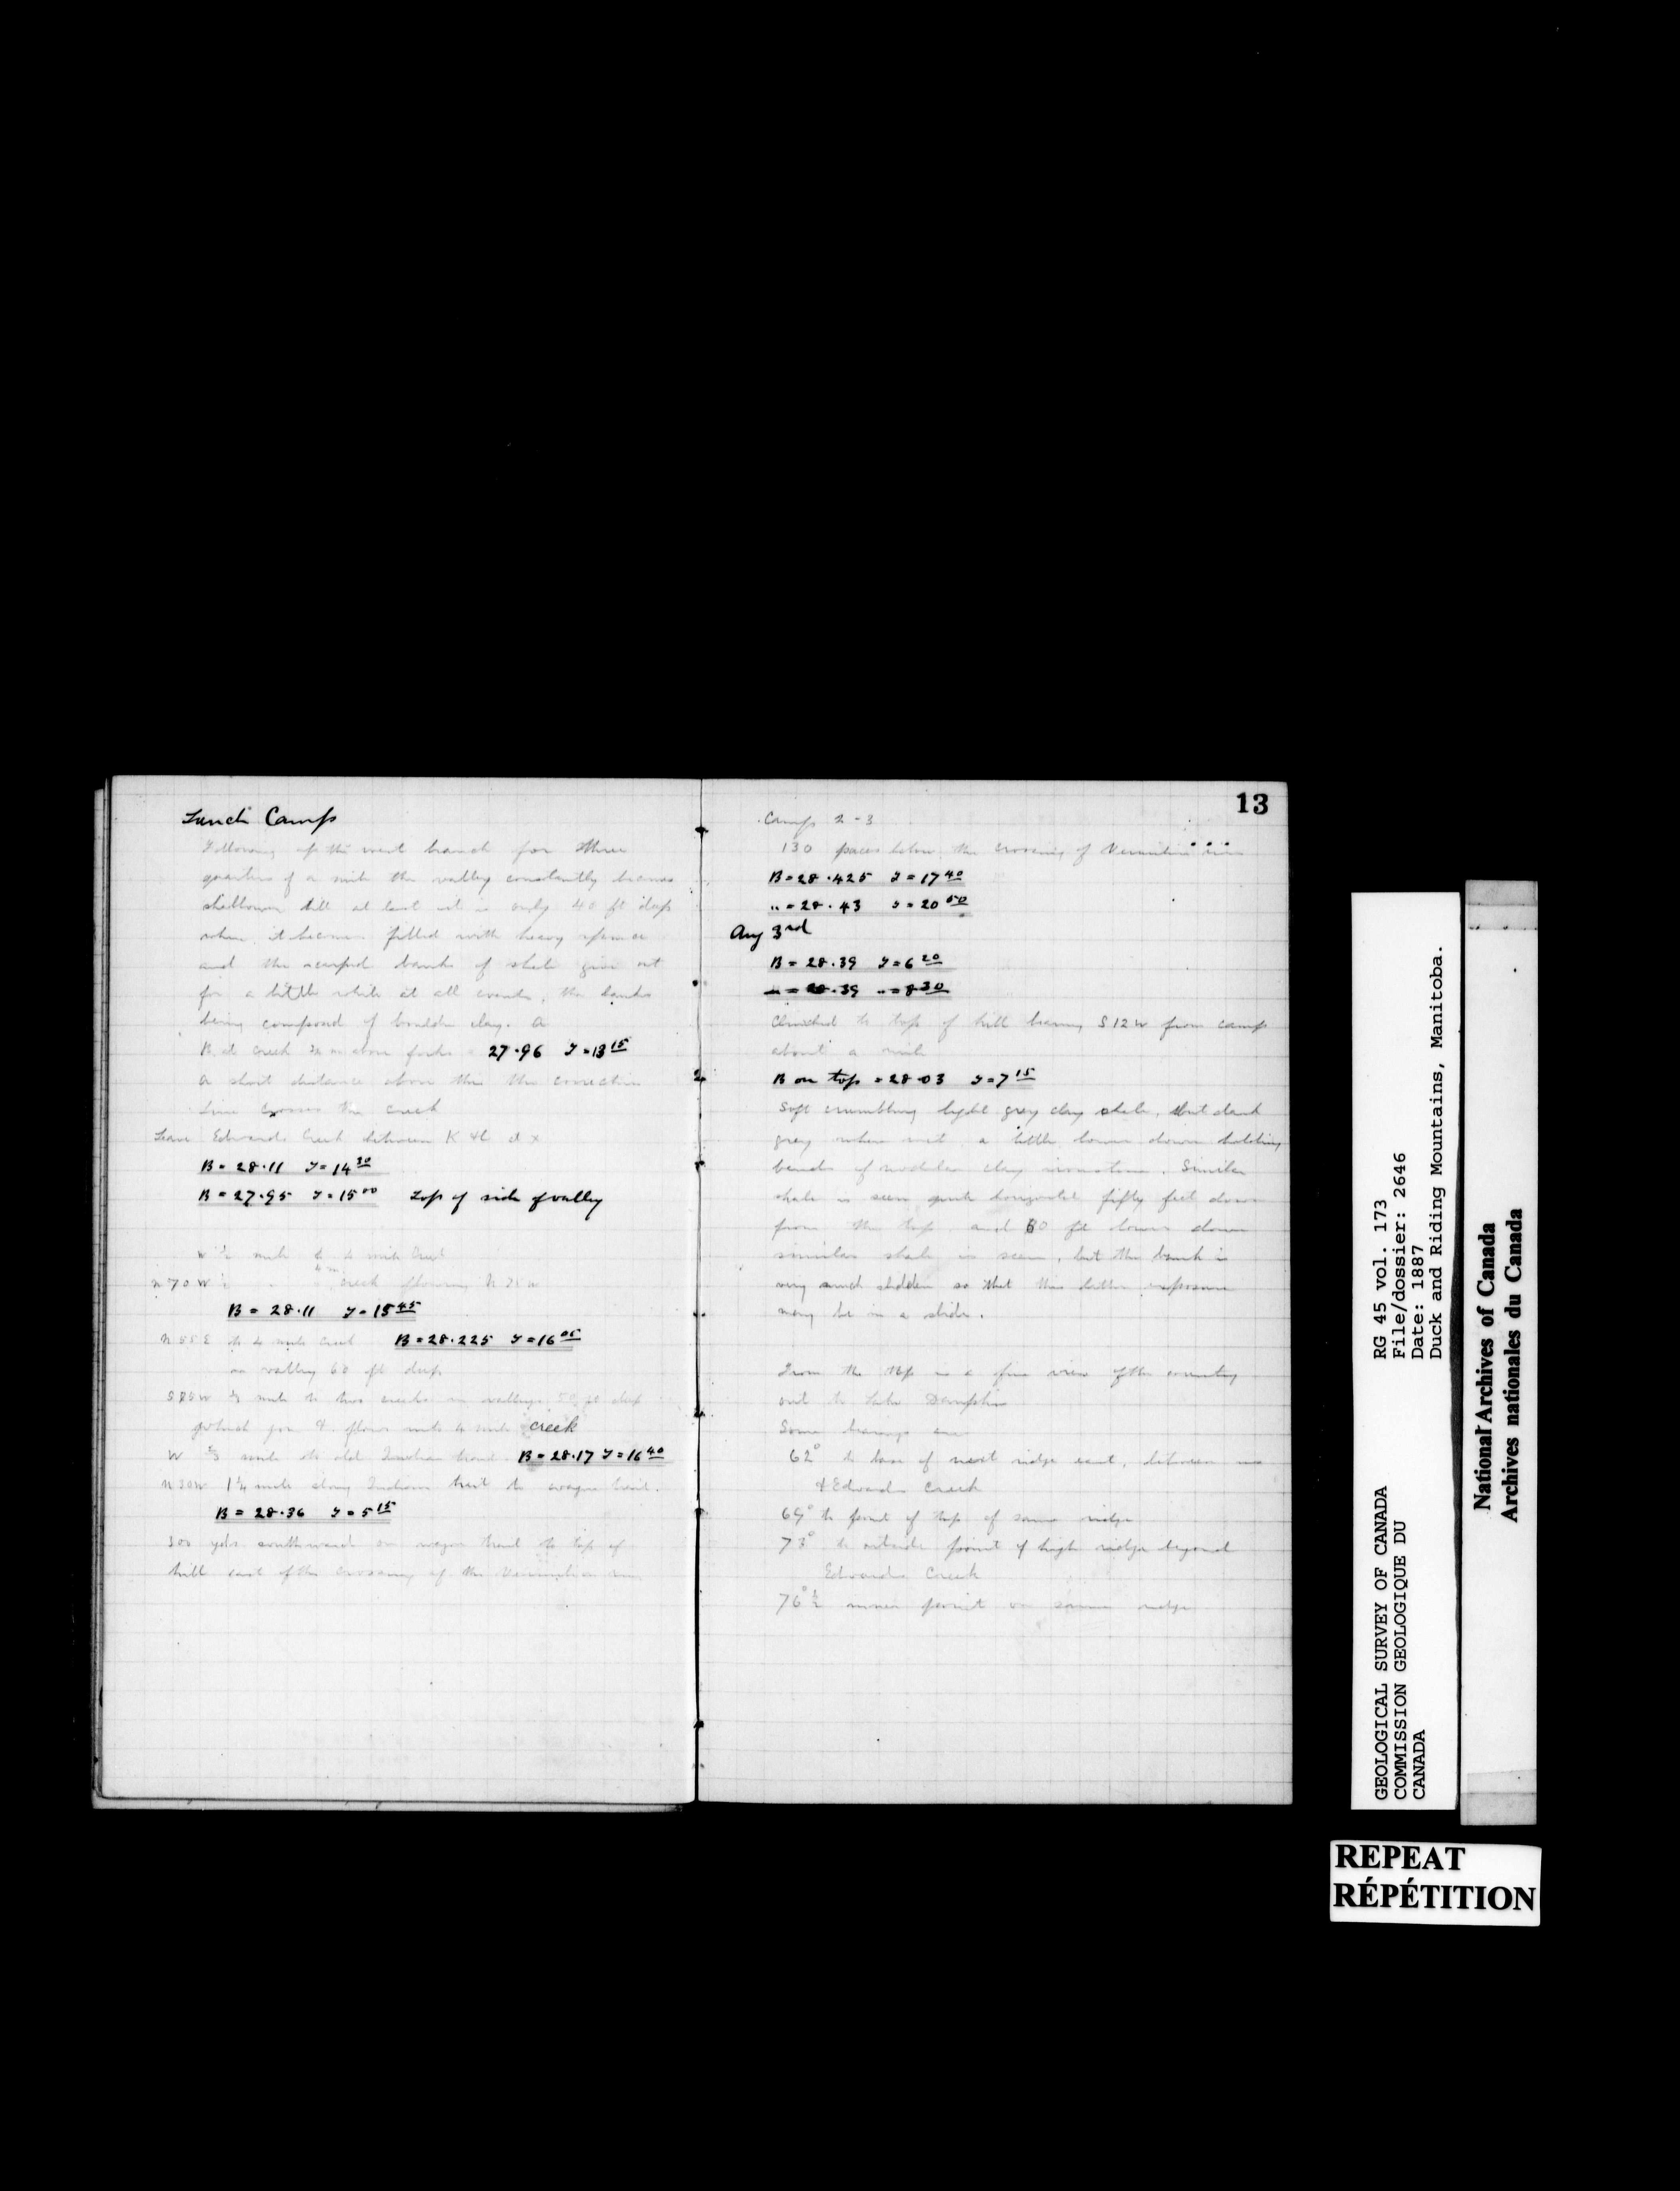 Lunch Camp
Following up the west branch for three
quarters of a mile the valley constantly becomes
shallower till at last it is only 40 ft deep
when it becomes filled with heavy spruce
and the scarped banks of shale give out
for a little while at all events, the banks
being composed of boulder clay. A
B. at creek ¾ m above forks = 27.96 T=13 15
A short distance above this the correction
line crosses the creek
Leave Edwards Creek between K & L at x
B = 28.11 T=14 30
B = 27.95 T=15 00 top of side of valley
W ½ mile to 4 mile Creek
N 70 W creek flowing N
B = 28.11 T=15 45
N 55 E to 4 mile Creek B=28.225 T=16 05
in valley 60 ft deep
mile to two creeks in valleys 50 ft deep
which join & flow into 4 mile creek
W mile to old Indian trail B=28.17 T=16 40
N 30 W 1¼ mile along Indian trail to wagon trail.
B = 28.36 T=5 15
300 yds southward on wagon trail to top of
hill east of the crossing of the Vermilion
13
Camp 2-3
130 paces below the crossing of Vermilion river
B=28.425 T=17 40
" = 28.43 T=20 50
Aug 3rd
B = 28.39 T=6 20
" = 28.39 " = 8 30
Climbed to top of hill bearing S 12 W from camp
about a mile
B on top = 28.03 T=7 15
Soft crumbling light grey clay shale, but dark
grey when wet, a little lower down holding
bands of nodular clay ironstone. Similar
shale is seen quite horizontal fifty feet down
from the top and 60 ft lower down
similar shale is seen, but the bank is
very much slidden so that this latter exposure
may be in a slide.
From the top is a fine view of the country
out to Lake Dauphin
Some bearings are
62° to base of next ridge east, between us
& Edwards Creek
69° to point of top of same ridge
73° to outside point of high ridge beyond
Edwards Creek
76°½ inner point on same ridge
GEOLOGICAL SURVEY OF CANADA
COMMISSION GEOLOGIQUE DU
CANADA
RG 45 vol. 173
File/dossier: 2646
Date: 1887
Duck and Riding Mountains, Manitoba.
National Archives of Canada
Archives nationales du Canada
REPEAT
RÉPÉTITION